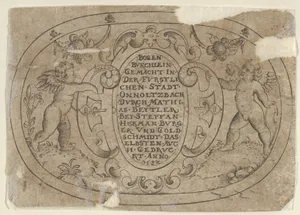 BOSEN
BVECHLEIN
GEMACHT IN
DER FVRSTLI
CHEN STADT
ONNOLTZBACH
DVRCH MATHI
AS BEITLER
BEI STEFFAN
HERMAN BVRG
ER VND GOLD
SCHMIDT DAS
ELBSTEN AVC
H GEDRVC
RT ANNO